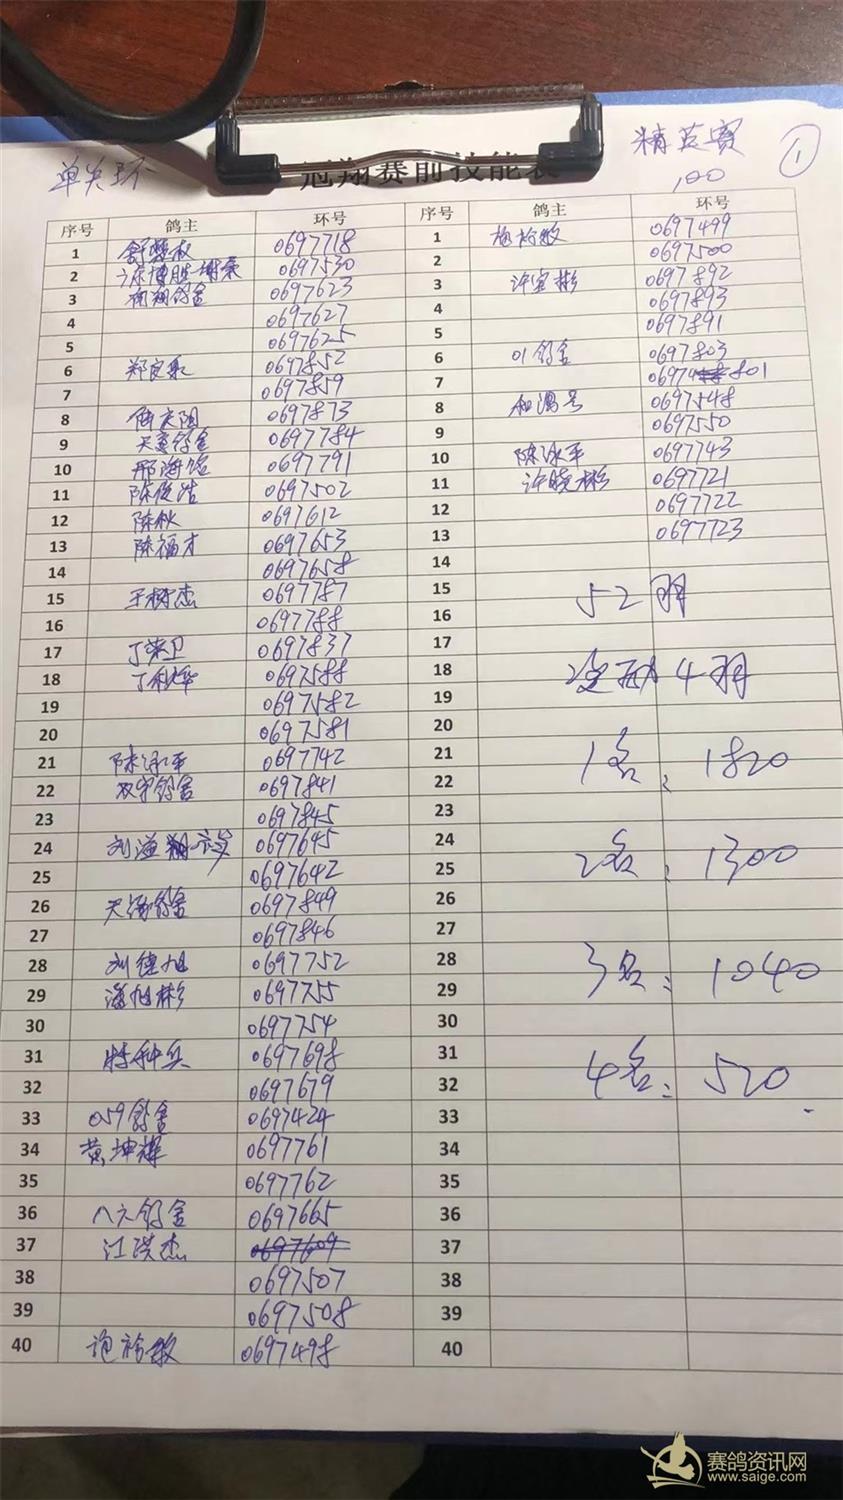 单关环
冠翔赛前技能表
精英赛
100
1
序号 鸽主 环号
1 0697718
2 0697530
3 0697623
4 0697627
5 0697625
6 郑良泉 0697852
7 0697859
8 0697873
9 0697784
10 邢海铭 0697791
11 陈俊浩 0697502
12 陈秋 0697612
13 陈福才 0697653
14 0697658
15 王树杰 0697787
16 0697788
17 丁荣卫 0697837
18 丁利烽 0697588
19 0697582
20 0697581
21 陈泳平 0697742
22 双宇鸽舍 0697841
23 0697845
24 刘溢 0697645
25 0697642
26 鸽舍 0697849
27 0697846
28 刘德旭 0697752
29 潘旭彬 0697755
30 0697754
31 特种兵 0697698
32 0697679
33 059鸽舍 0697424
34 黄坤辉 0697761
35 0697762
36 八六鸽舍 0697665
37 江洪杰 0697609
38 0697507
39 0697508
40 0697498
序号 鸽主 环号
1 0697499
2 0697500
3 许宝彬 0697892
4 0697893
5 0697891
6 01鸽舍 0697803
7 801
8 0697548
9 0697550
10 陈泳平 0697743
11 许晓彬 0697721
12 0697722
13 0697723
14
15 52羽
16
17
18 4羽
19
20
21 1名: 1820
22
23
24
25 2名: 1300
26
27
28 3名: 1040
29
30
31
32 4名: 520
33
34
35
36
37
38
39
40
赛鸽资讯网
www.saige.com